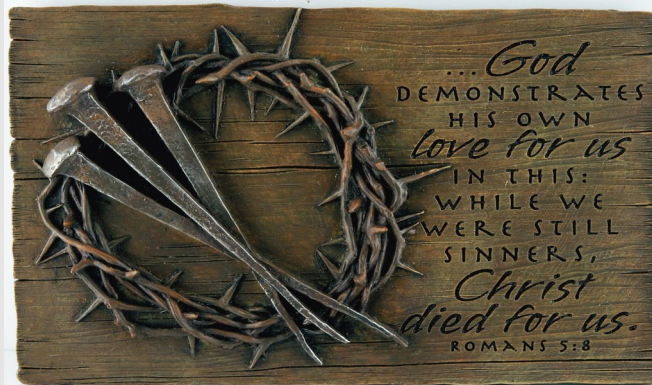 ...God
DEMONSTRATES
HIS OWN
love for us
IN THIS:
WHILE WE
WERE STILL
SINNERS,
Christ
died for us.
ROMANS 5:8